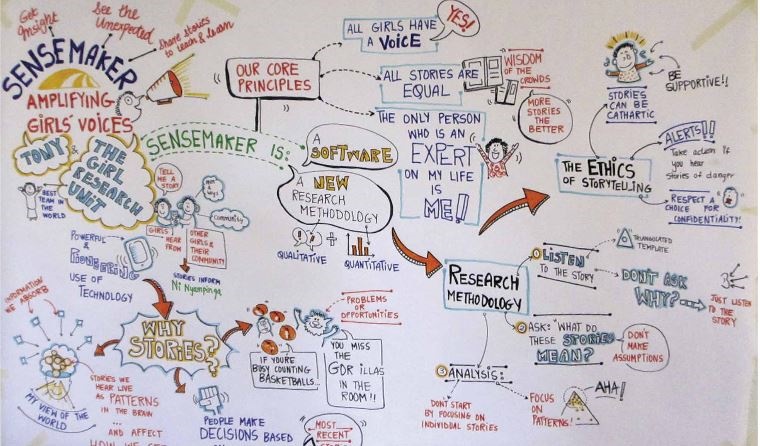 Get Insight
See the Unexpected
Share stories to teach & learn
SENSEMAKER
AMPLIFYING
GIRLS' VOICES
TONY &
THE GIRL
RESEARCH
UNIT
BEST
TEAM IN
THE
WORLD
OUR CORE
PRINCIPLES
ALL GIRLS HAVE
A VOICE
YES!
ALL STORIES ARE
EQUAL
WISDOM
OF THE
CROWDS
MORE
STORIES
THE
BETTER
THE ONLY PERSON
WHO IS AN
EXPERT
ON MY LIFE
IS
ME!!
SENSEMAKER IS:
A
SOFTWARE
A NEW
RESEARCH
METHODOLOGY
QUALITATIVE
+
QUANTITATIVE
TELL
ME A
STORY
COMMUNITY
GIRLS
HEAR
FROM
OTHER
GIRLS &
THEIR
COMMUNITY
STORIES INFORM
Ni Nyampinga
POWERFUL
&
PIONEERING
USE OF
TECHNOLOGY
INFORMATION
WE ABSORB
MY VIEW OF THE
WORLD
STORIES WE
HEAR LIVE
AS PATTERNS
IN THE BRAIN
... AND AFFECT
WHY
STORIES?
PEOPLE MAKE
DECISIONS BASED
MOST
RECENT
IF YOU'RE
BUSY COUNTING
BASKETBALLS...
YOU MISS
THE
GORILLAS
IN THE
ROOM!!
PROBLEMS OR
OPPORTUNITIES
STORIES
CAN BE
CATHARTIC
BE
SUPPORTIVE!!
THE ETHICS
OF STORYTELLING
ALERTS!!
Take action if
you hear
stories of danger
RESPECT A
CHOICE FOR
CONFIDENTIALITY!
RESEARCH
METHODOLOGY
① LISTEN
TO THE STORY
TRIANGULATED
TEMPLATE
DON'T ASK
WHY?
JUST LISTEN
TO THE
STORY
② ASK: "WHAT DO
THESE STORIES
MEAN?
DON'T
MAKE
ASSUMPTIONS
③ ANALYSIS:
DONT START
BY FOCUSING ON
INDIVIDUAL STORIES
FOCUS
ON
PATTERNS!
AHA!